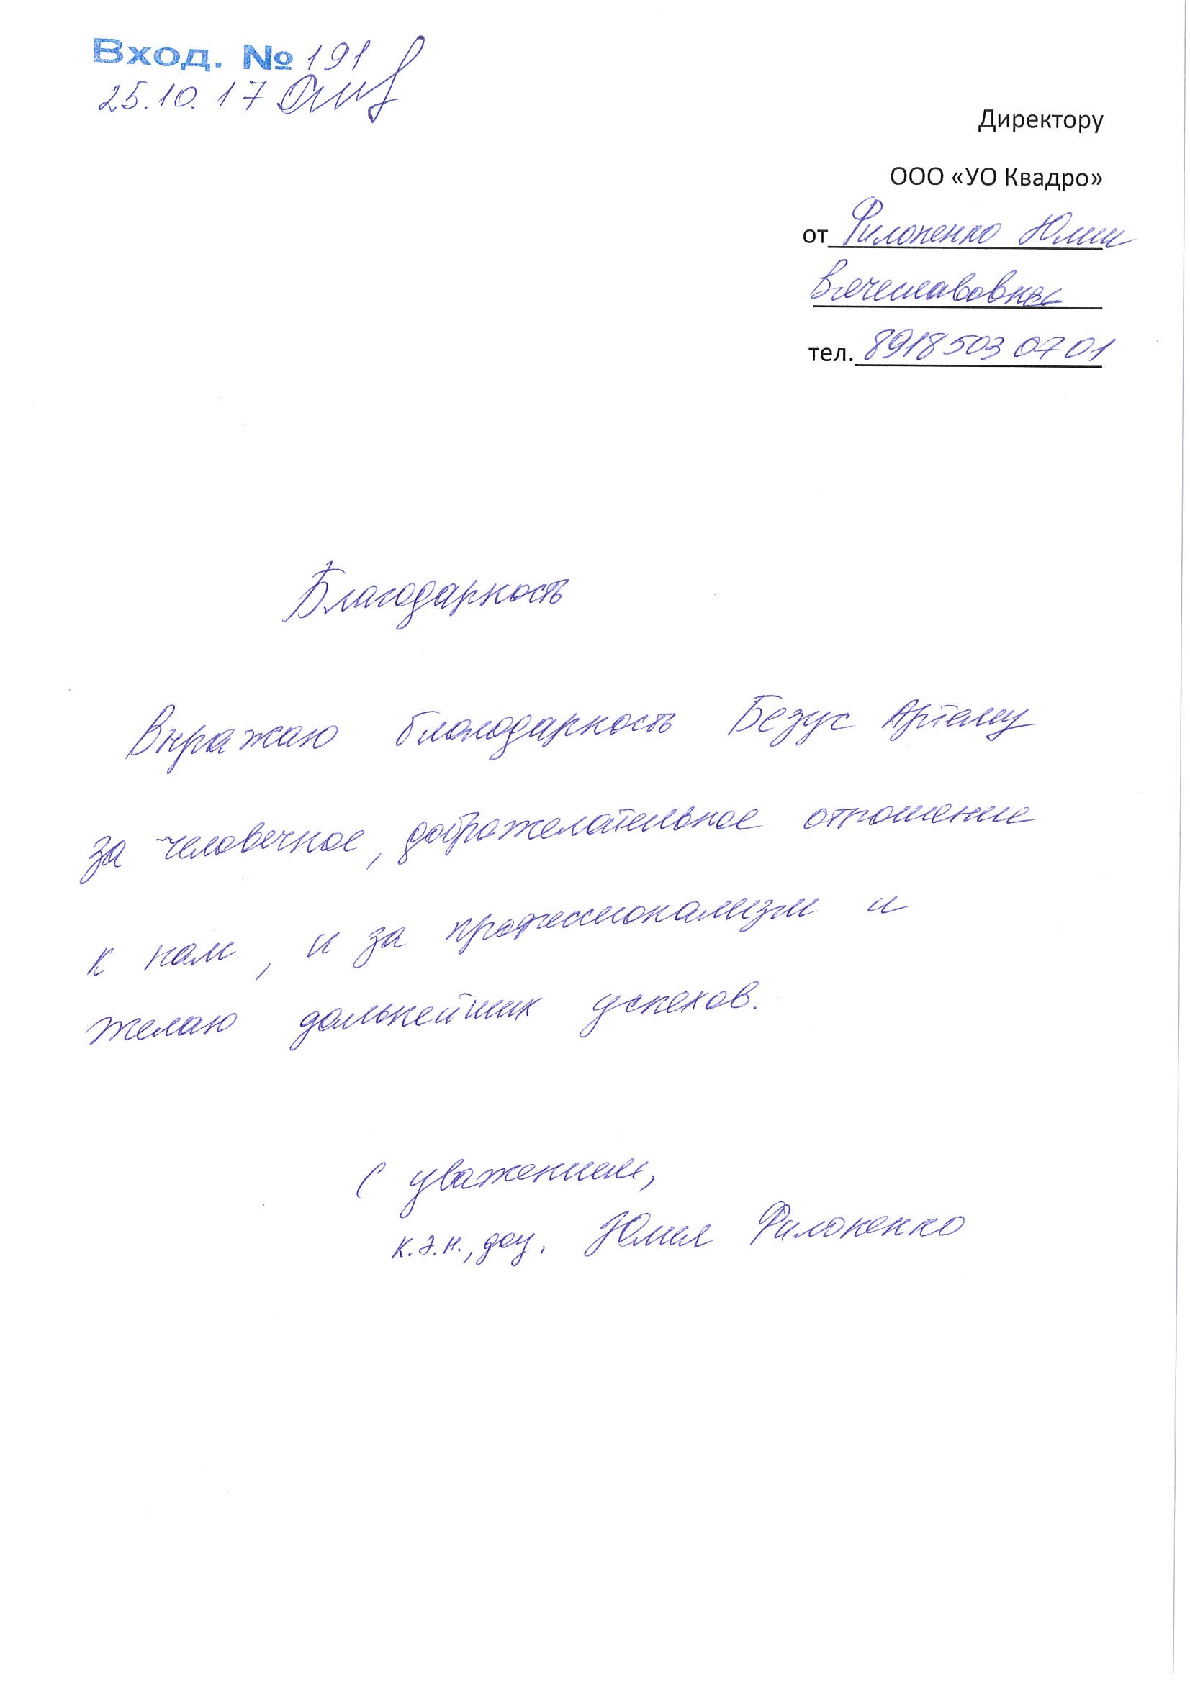 Вход. № 191
25.10.17
Директору
ООО «УО Квадро»
от Филоненко Юлии
Вячеславовны
тел. 8918 503 07 01
Благодарность
Выражаю благодарность Безус Артему
за человечное, доброжелательное отношение
к нам, и за профессионализм и
желаю дальнейших успехов.
С уважением,
к.э.н., доц. Юлия Филоненко